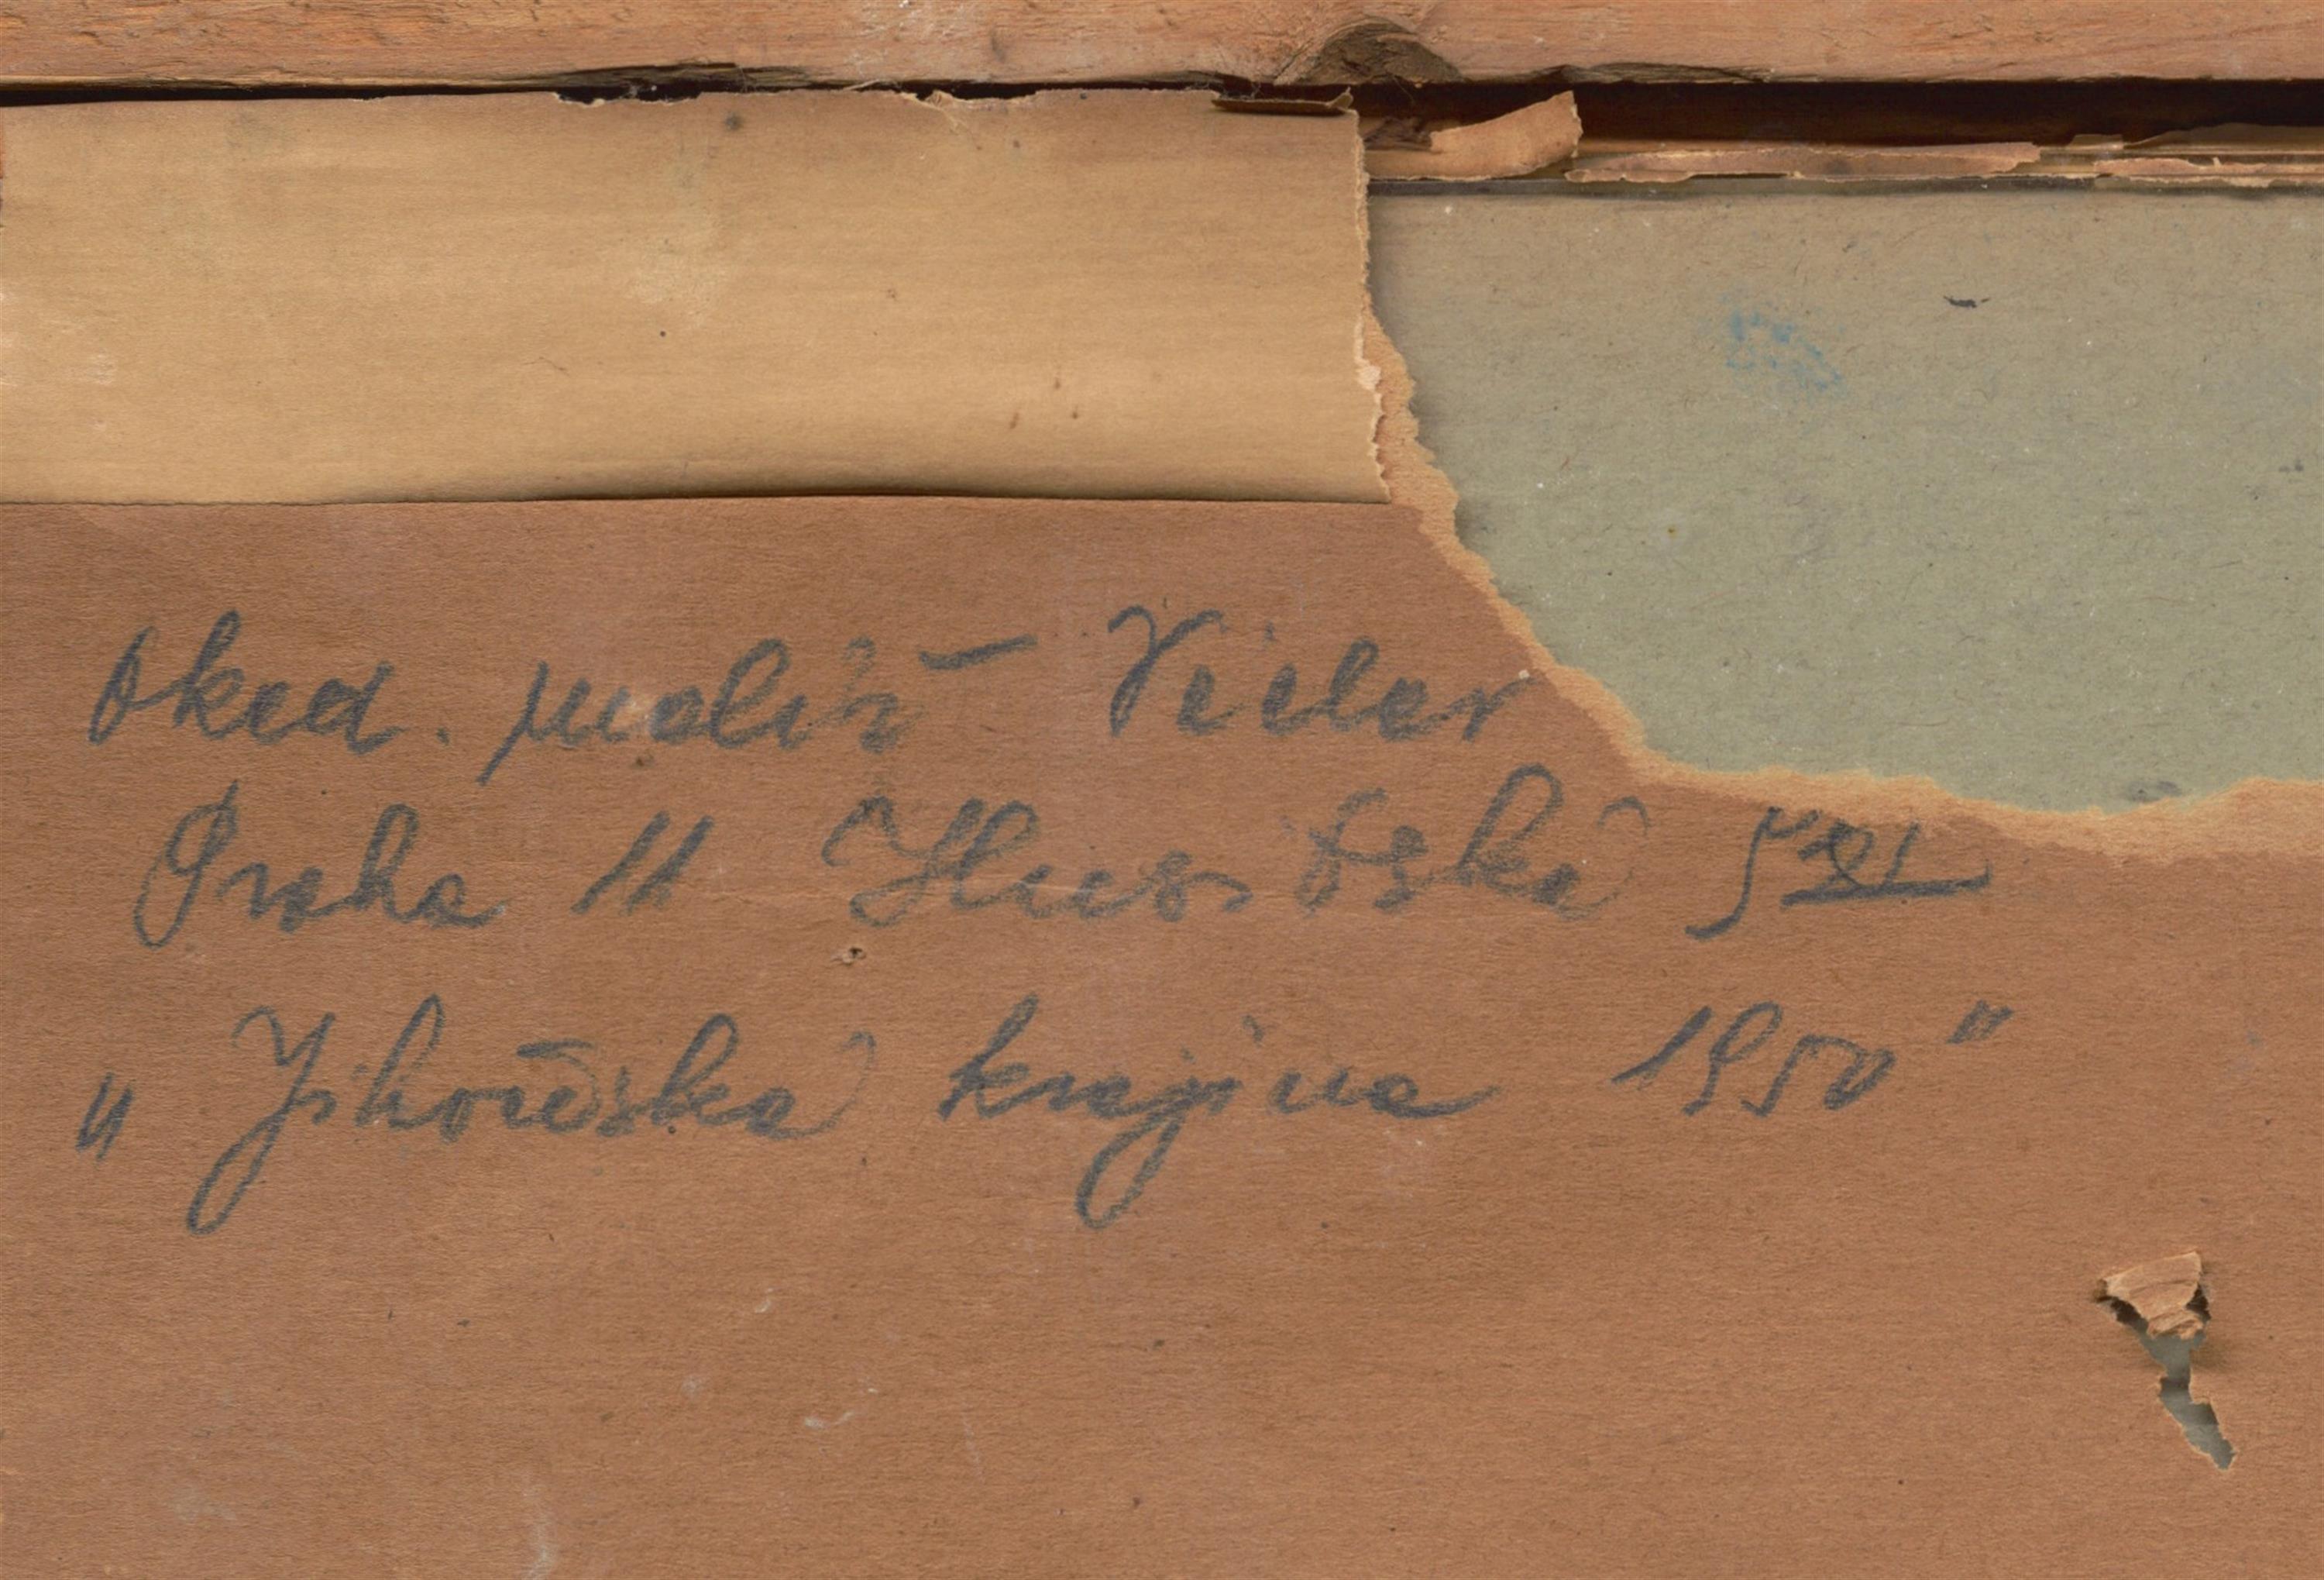 Akad. malíř Vieler
Praha 11 Husitská
„Jihočeská krajina 1950"